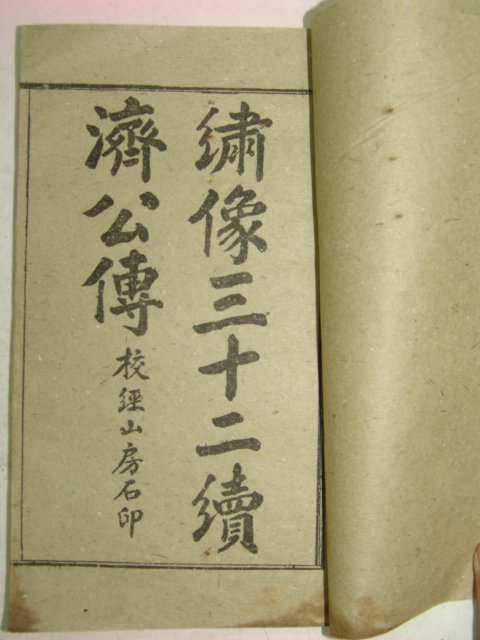 繡像三十二續
濟公傳
校經山房石印